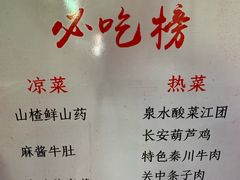 必吃榜
凉菜 热菜
山楂鲜山药 泉水酸菜江团
麻酱牛肚 长安葫芦鸡
特色秦川牛肉
关中条子肉